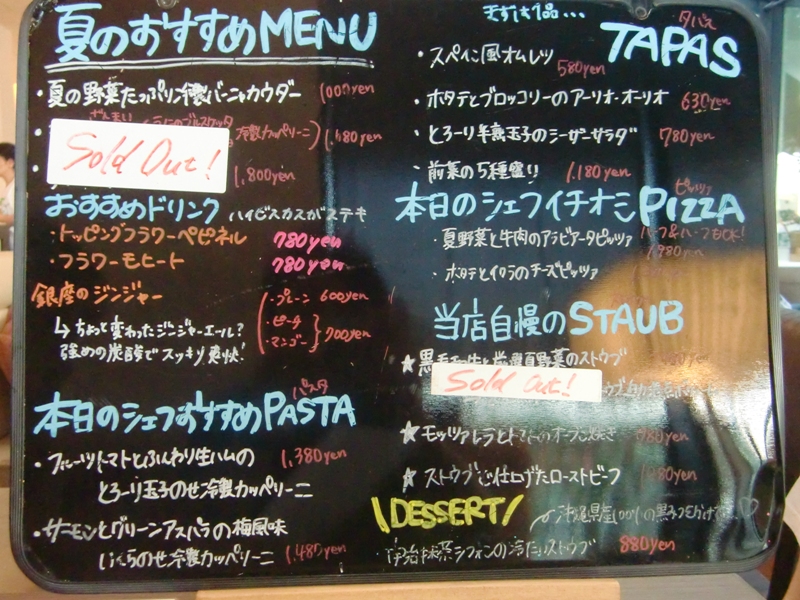 夏のおすすめMENU
・夏の野菜たっぷり特製バーニャカウダー 1000yen
冷製カッペリーニ) 1,480yen
Sold Out!
1,800yen
おすすめドリンク ハイビスカスがステキ
・トッピングフラワーペピネル 780yen
・フラワーモヒート 780yen
銀座のジンジャー
・プレーン 600yen
・ピーチ
・マンゴー 700yen
↳ちょっと変わったジンジャーエール?
強めの炭酸でスッキリ爽快!
パスタ
本日のシェフおすすめPASTA
・フルーツトマトとふんわり生ハムの 1,380yen
とろーり玉子のせ冷製カッペリーニ
・サーモンとグリーンアスパラの梅風味
いくらのせ冷製カッペリーニ 1,480yen
まずは1品...
タパス
TAPAS
・スペイン風オムレツ 580yen
・ホタテとブロッコリーのアーリオ・オーリオ 630yen
・とろーり半熟玉子のシーザーサラダ 780yen
・前菜の5種盛り 1,180yen
ピッツァ
本日のシェフイチオシPIZZA
・夏野菜と牛肉のアラビアータピッツァ ハーフ&ハーフもOK!
・ホタテとイクラのチーズピッツァ
当店自慢のSTAUB
★黒毛和牛と厳選夏野菜のストウブ
Sold Out!!
★モッツァレラとトマトのオーブン焼き
★ストウブで仕上げたローストビーフ
\DESSERT/
沖縄県産100%の黒みつをかけて
宇治抹茶シフォンの冷たいストウブ 880yen